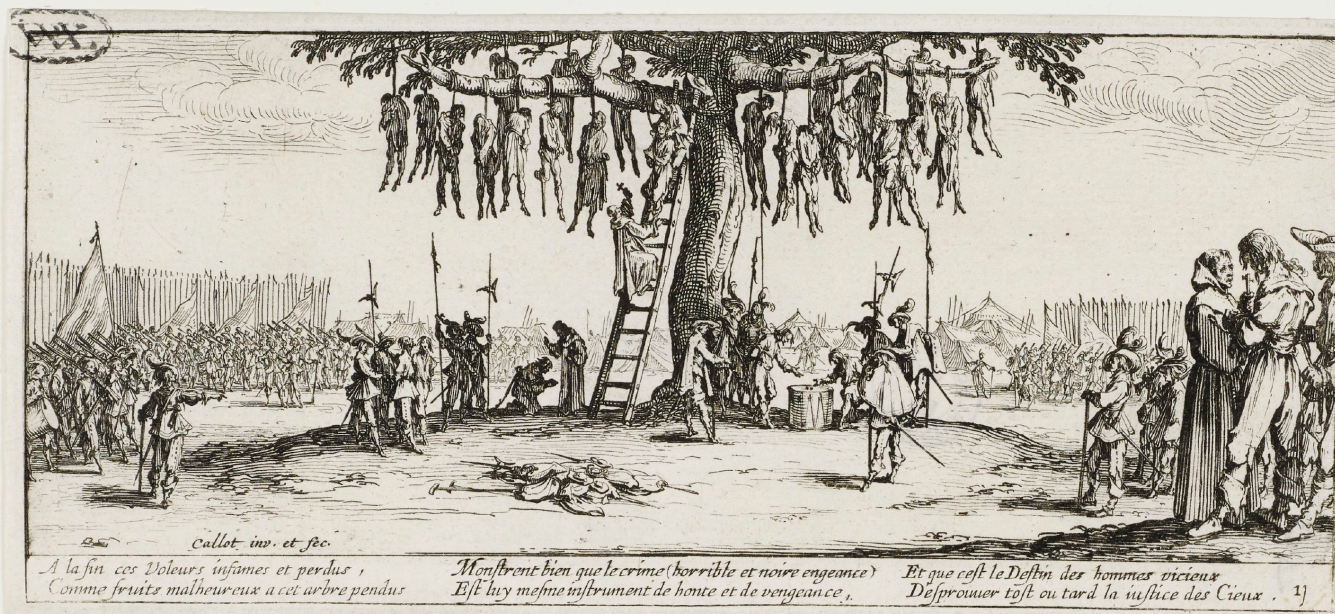 Callot inv. et fec.
A la fin ces Voleurs infames et perdus ,
Comme fruits malheureux a cet arbre pendus
Monstrent bien que le crime (horrible et noire engeance)
Est luy mesme instrument de honte et de vengeance ,
Et que cest le Destin des hommes vicieux
Desprouuer tost ou tard la iustice des Cieux . 11